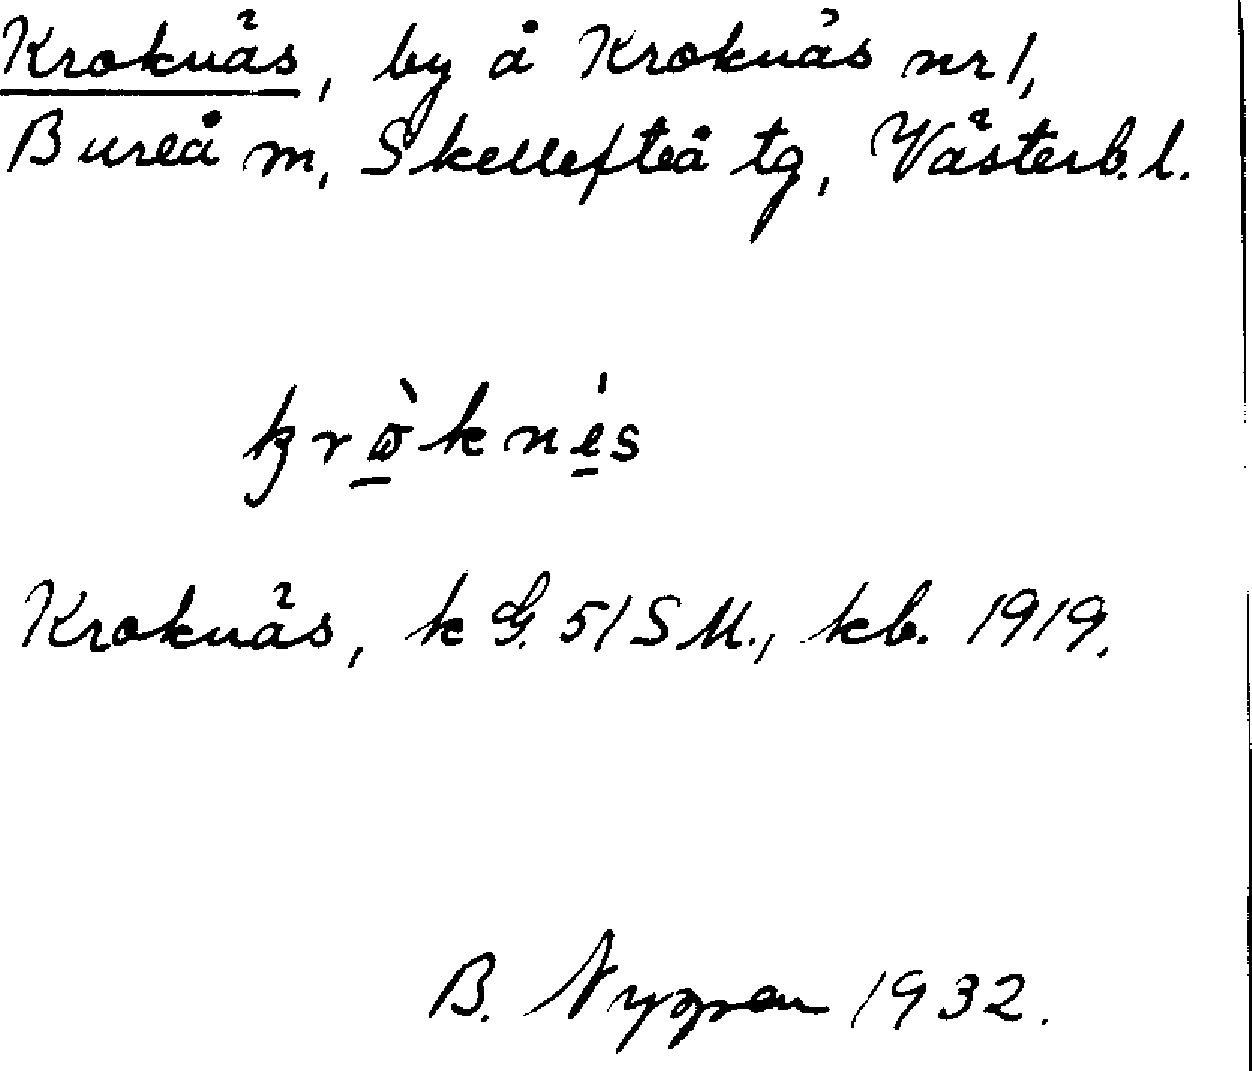 Kroknäs, by å Kroknäs nr 1,
Bureå m, Skellefteå tg, Västerb. l.
krò̱kné̱s
Kroknäs, k G. 51 S M., kb. 1919.
B. Nygren 1932.